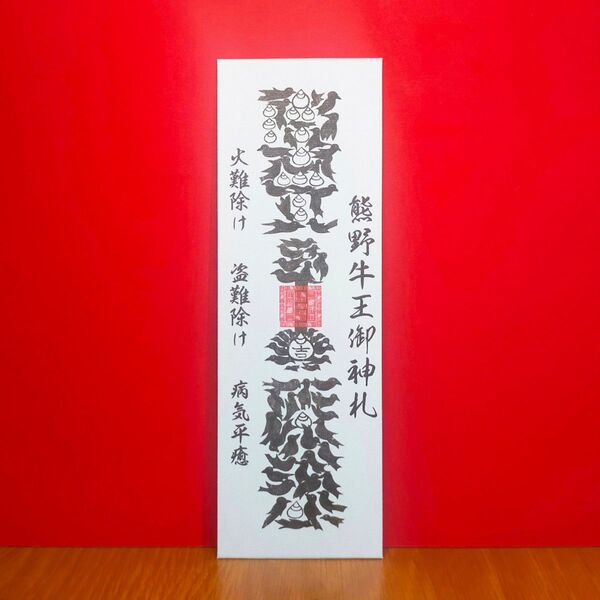 熊野牛王御神札
火難除け 盗難除け 病気平癒